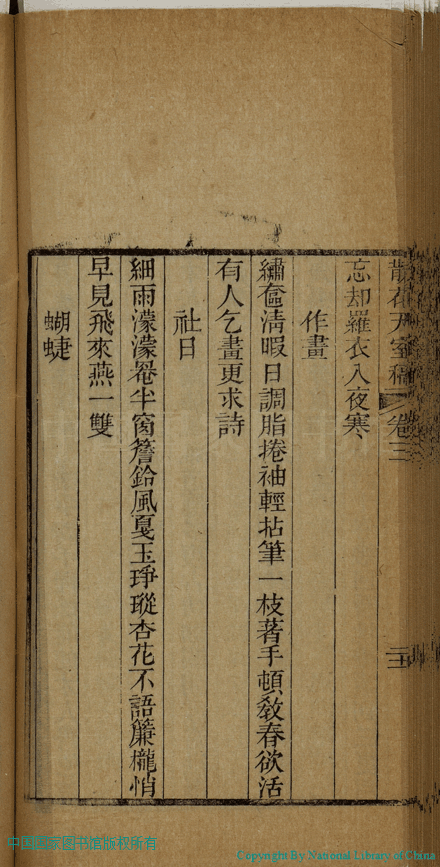 散花天室稿 卷三 二
忘却羅衣入夜寒
作畫
繡奩清暇日調脂捲袖輕拈筆一枝著手頓教春欲活
有人乞畫更求詩
社日
細雨濛濛罨半窗簷鈴風戛玉琤瑽杏花不語簾櫳悄
早見飛來燕一雙
蝴蜨
中国国家图书馆版权所有
Copyright By National Library of China